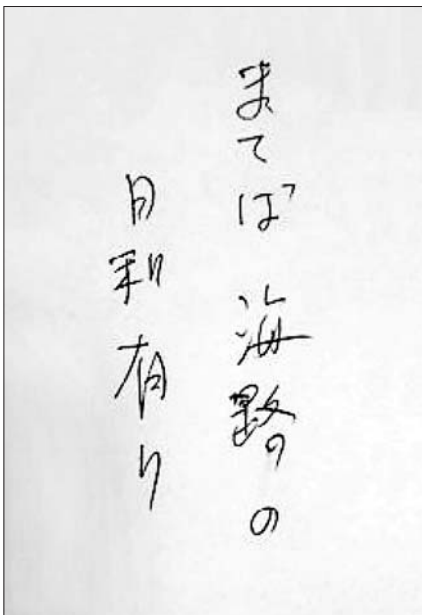 まてば 海路の
日和有り